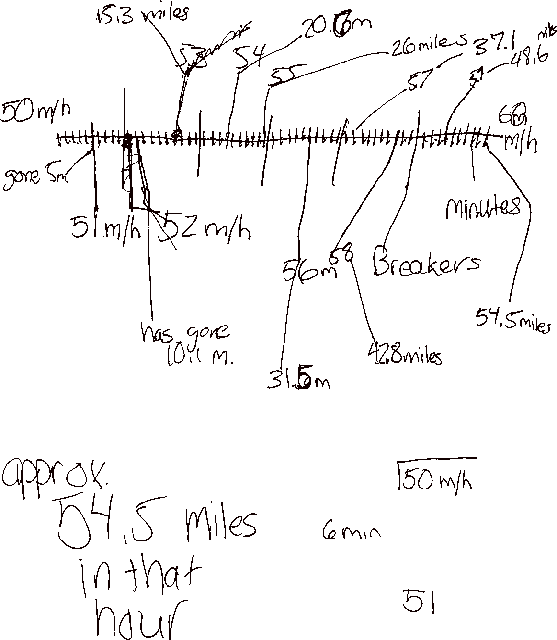 15.3 miles
20.6m
53
54
26 miles
37.1
miles
48.6
55
57
50 m/h
60
m/h
gone 5m
minutes
51 m/h
52 m/h
56m
58
Breakers
54.5 miles
has gone
10.1 m.
42.8 miles
31.5m
approx.
54.5 miles
in that
hour
50 m/h
6 min
51